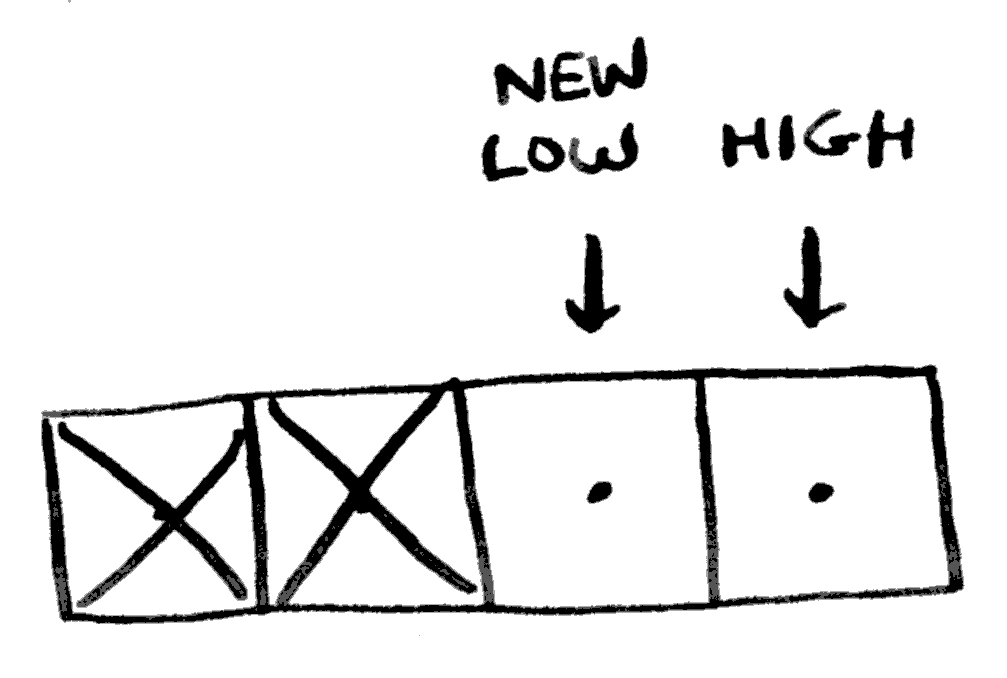 NEW
LOW HIGH